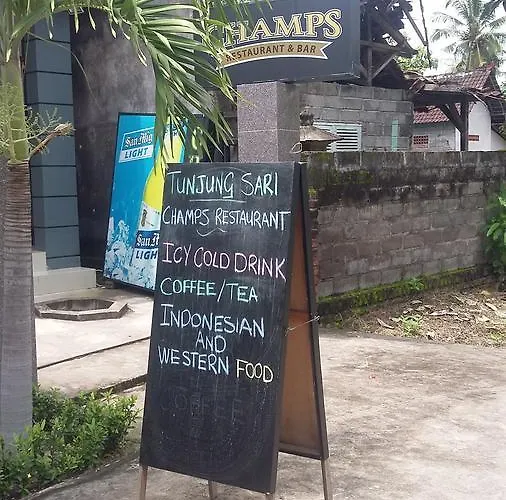 CHAMPS
RESTAURANT & BAR
San Mig
LIGHT
San Mig
LIGHT
TUNJUNG SARI
CHAMPS RESTAURANT
ICY COLD DRINK
COFFEE/TEA
INDONESIAN
AND
WESTERN FOOD
COFFEE